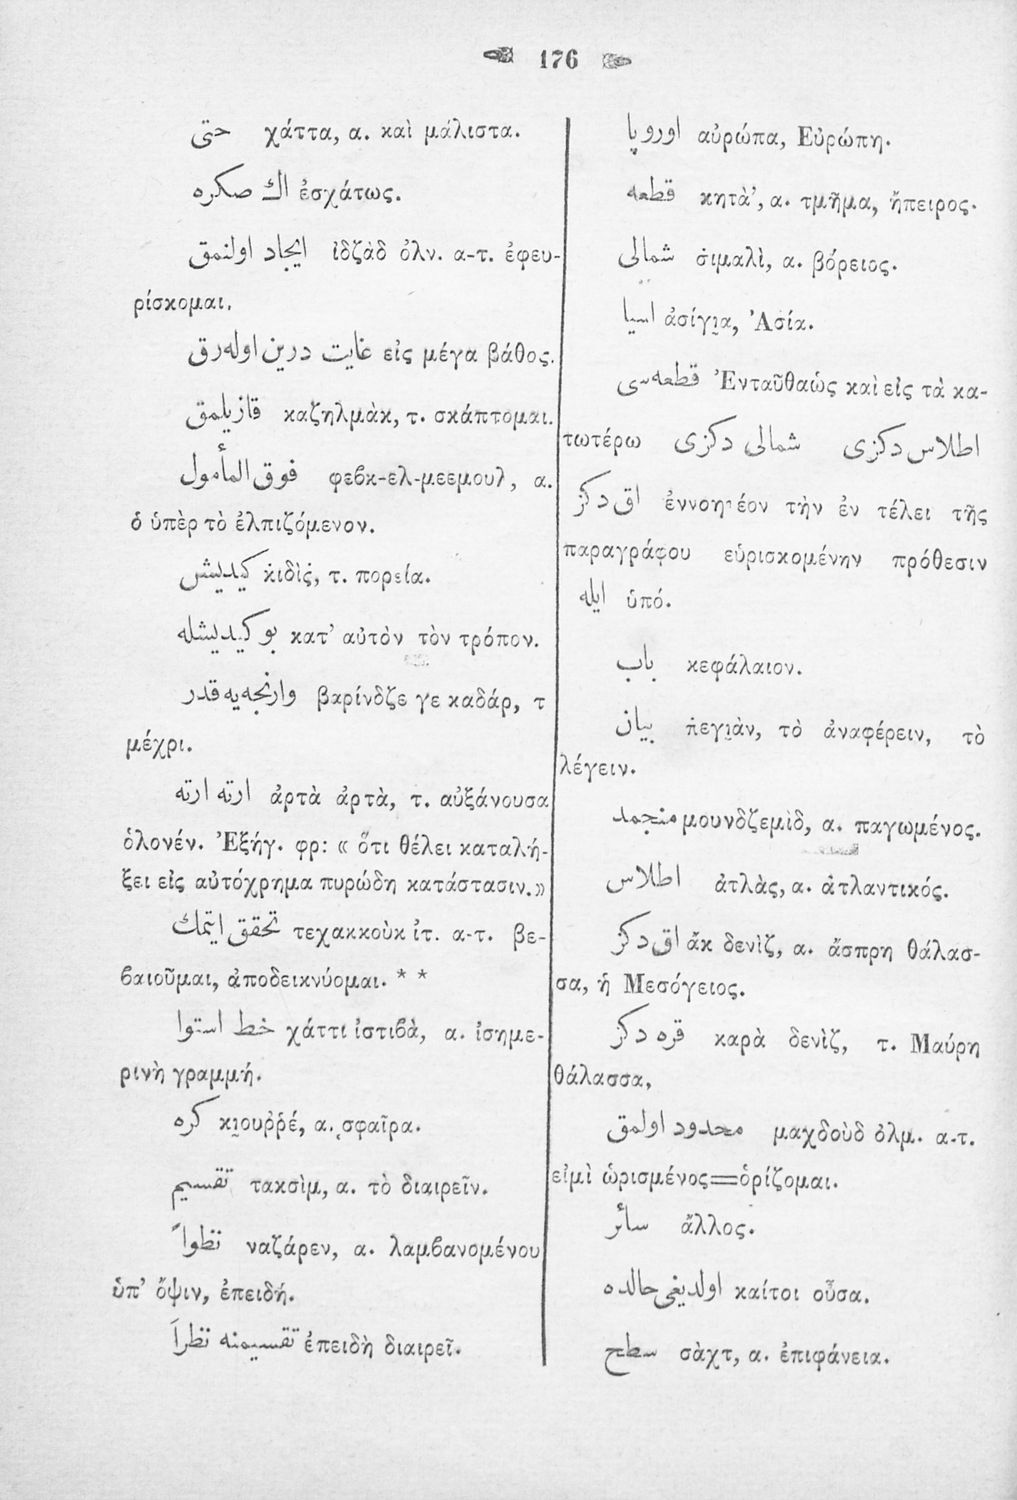 176
حتى χάττα, α. καὶ μάλιστα.
اڭ صكره ἐσχάτως.
ايجاد اولنمق ἰδζὰδ ὀλν. α-τ. ἐφευ-
ρίσκομαι.
غايت درين اوله رق εἰς μέγα βάθος.
قازيلمق καζηλμὰκ, τ. σκάπτομαι.
فوق المأمول φεβκ-ελ-μεεμουλ, α.
ὁ ὑπὲρ τὸ ἐλπιζόμενον.
كيديش κιδὶς, τ. πορεία.
بو كيديشله κατ’ αὐτὸν τὸν τρόπον.
وارنجه يه قدر βαρίνδζε γε καδάρ, τ
μέχρι.
ارته ارته ἀρτὰ ἀρτὰ, τ. αὐξάνουσα
ὁλονέν. Ἐξήγ. φρ: « ὅτι θέλει καταλή-
ξει εἰς αὐτόχρημα πυρώδη κατάστασιν.»
تحقق ايتمك τεχακκοὺκ ἰτ. α-τ. βε-
βαιοῦμαι, ἀποδεικνύομαι. * *
خط استوا χάττι ἰστιβὰ, α. ἰσημε-
ρινὴ γραμμή.
كره κιουῤῥέ, α. σφαῖρα.
تقسيم τακσὶμ, α. τὸ διαιρεῖν.
ναζάρεν, α. λαμβανομένου
ὑπ’ ὄψιν, ἐπειδή.
تقسيمنه نظراً ἐπειδὴ διαιρεῖ.
اوروپا αὐρώπα, Εὐρώπη.
قطعه κητὰ’, α. τμῆμα, ἤπειρος.
شمالى σιμαλὶ, α. βόρειος.
اسيا ἀσίγια, Ἀσία.
قطعه سى Ἐνταῦθα ὡς καὶ εἰς τὰ κα-
τωτέρω اطلاس دكزى شمالى دكزى
اق دكز ἐννοητέον τὴν ἐν τέλει τῆς
παραγράφου εὑρισκομένην πρόθεσιν
ايله ὑπό.
باب κεφάλαιον.
بيان πεγιὰν, τὸ ἀναφέρειν, τὸ
λέγειν.
منجمد μουνδζεμὶδ, α. παγωμένος.
اطلاس ἀτλὰς, α. ἀτλαντικός.
اق دكز ἄκ δενὶζ, α. ἄσπρη θάλασ-
σα, ἡ Μεσόγειος.
قره دكز καρὰ δενὶζ, τ. Μαύρη
θάλασσα,
محدود اولمق μαχδοὺδ ὀλμ. α-τ.
εἰμὶ ὡρισμένος=ὁρίζομαι.
سائر ἄλλος.
اولديغى حالده καίτοι οὖσα.
سطح σὰχτ, α. ἐπιφάνεια.